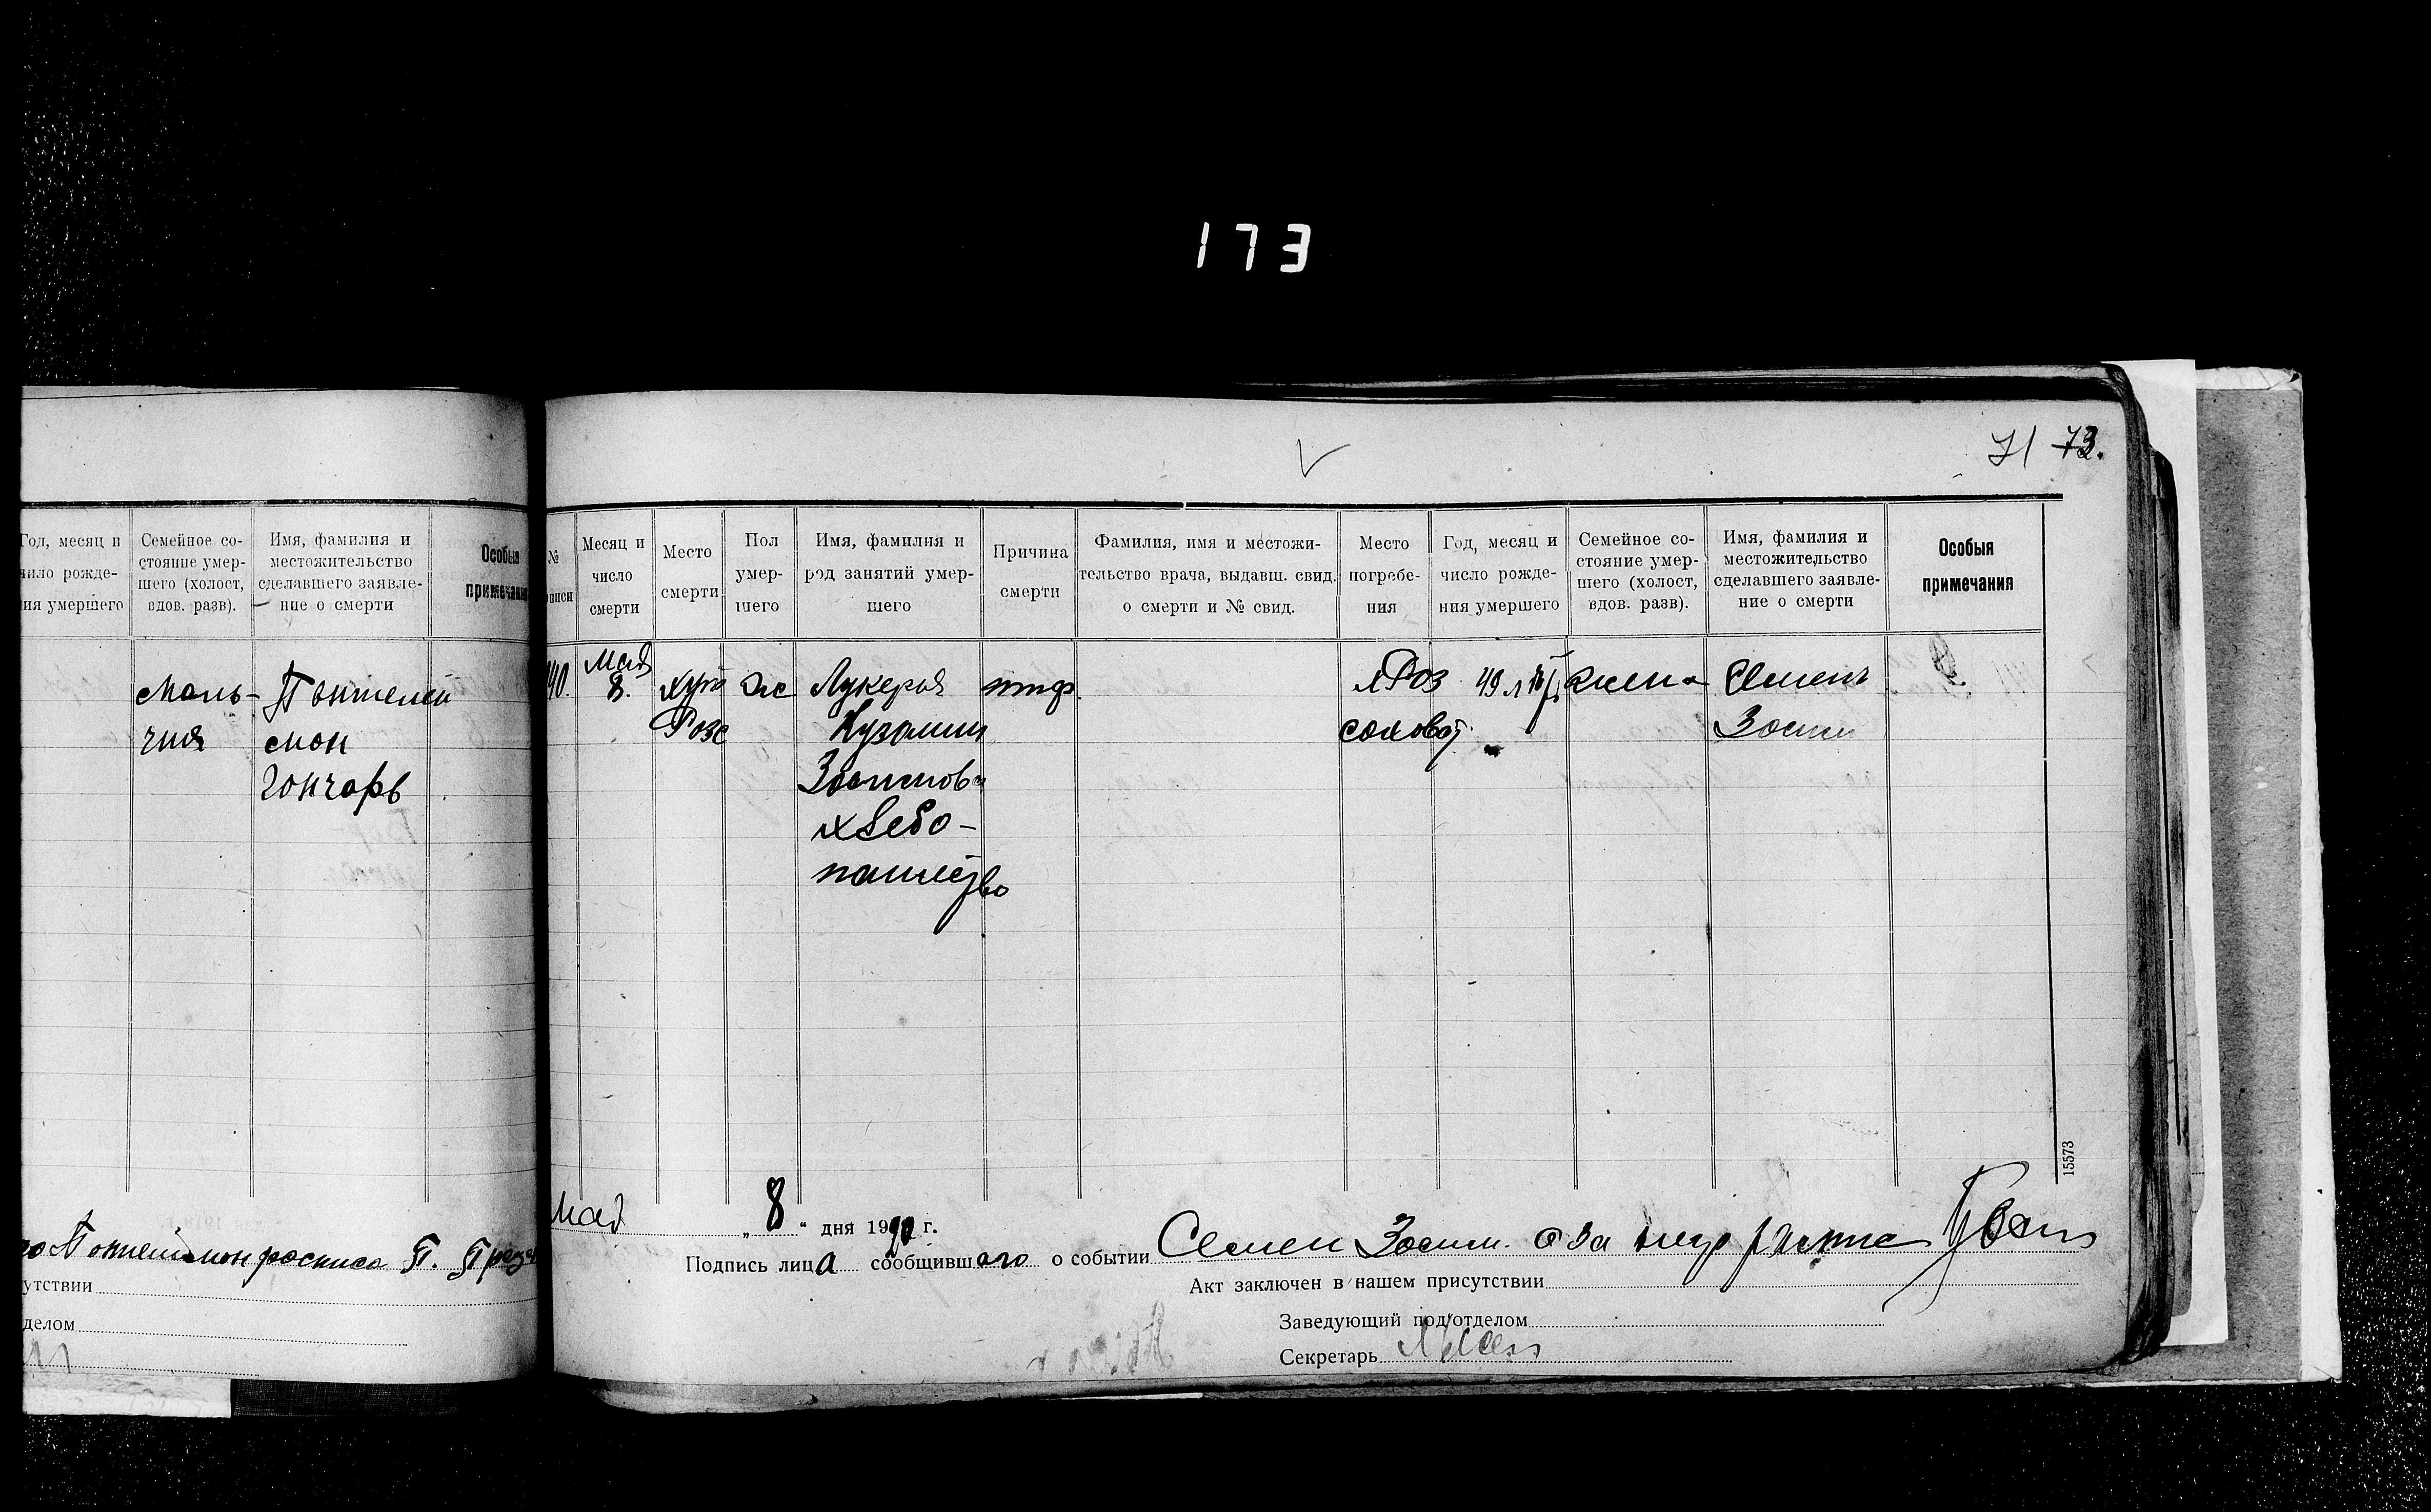 173
71 73.
Год, месяц и
число рожде-
ния умершего
Семейное со-
стояние умер-
шего (холост,
вдов. разв).
Имя, фамилия и
местожительство
сделавшего заявле-
ние о смерти
Особыя
примечания
маль-
чия
Пантелей
мон
Гончарь
Пантелимон росписа П.
утствии
делом
№
писи
Месяц и
число
смерти
Место
смерти
Пол
умер-
шего
Имя, фамилия и
род занятий умер-
шего
Причина
смерти
Фамилия, имя и местожи-
тельство врача, выдавш. свид.
о смерти и № свид.
Место
погребе-
ния
Год, месяц и
число рожде-
ния умершего
Семейное со-
стояние умер-
шего (холост,
вдов. разв).
Имя, фамилия и
местожительство
сделавшего заявле-
ние о смерти
Особыя
примечания
40.
Мая
8.
хут
Розс
Лукерья
Кузьмин
Зосимова
хлебо-
пашество
тиф
49 л
жена
Семен
Зосим
15573
Мая „ 8 “ дня 1920 г.
Подпись лица сообщившаго о событии Семен Зосим. а за него Иван
Акт заключен в нашем присутствии
Заведующий под'отделом
Секретарь